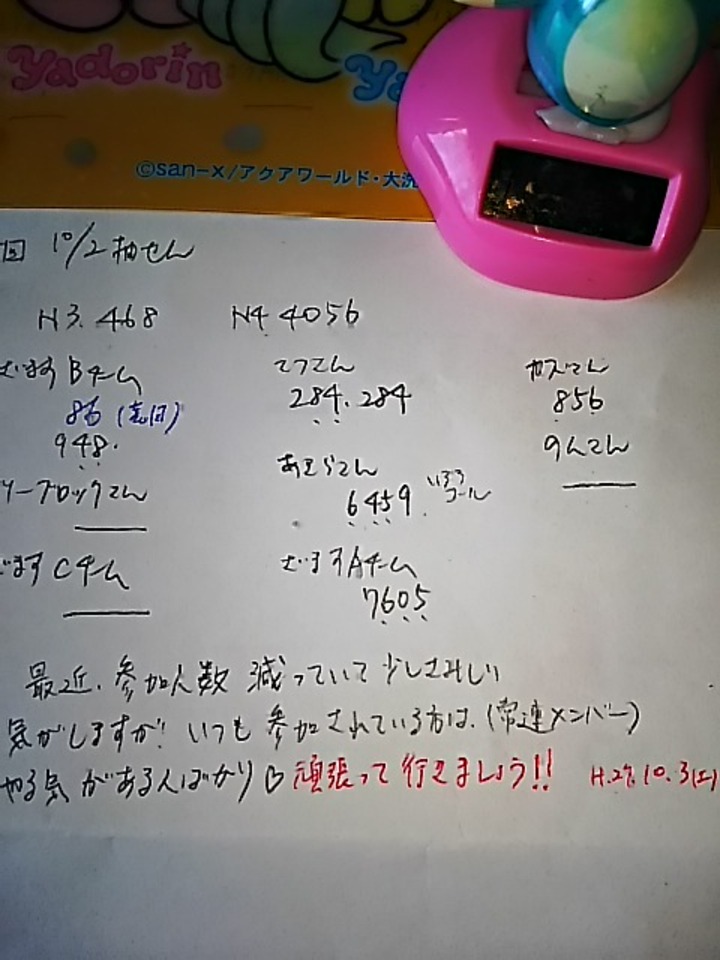 Yadorin
Ya
©san-x/アクアワールド・大洗
回 10/2 抽せん
N3. 468
N4 4056
Bチーム
86
948.
ブロックてん
Cチーム
てつてん
284. 284
あきらてん
6459.
コール
Aチーム
7605
856
最近、参加人数 減っていて 少しさみしい
気がしますが! いつも 参加されている方は、(常連メンバー)
やる気 があるんばかり♡ 頑張って 行きましょう!! H.27. 10. 3(土)